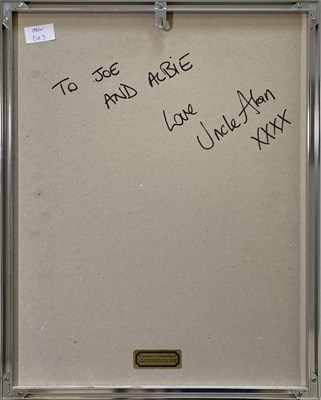 TO JOE
AND ALBIE
Love
Uncle Alan
XXXX